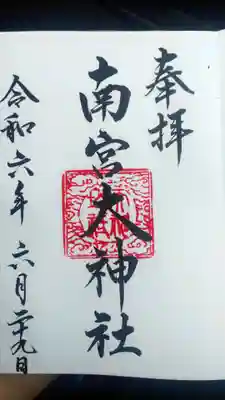 奉拝
南宮大神社
令和六年 六月二十九日